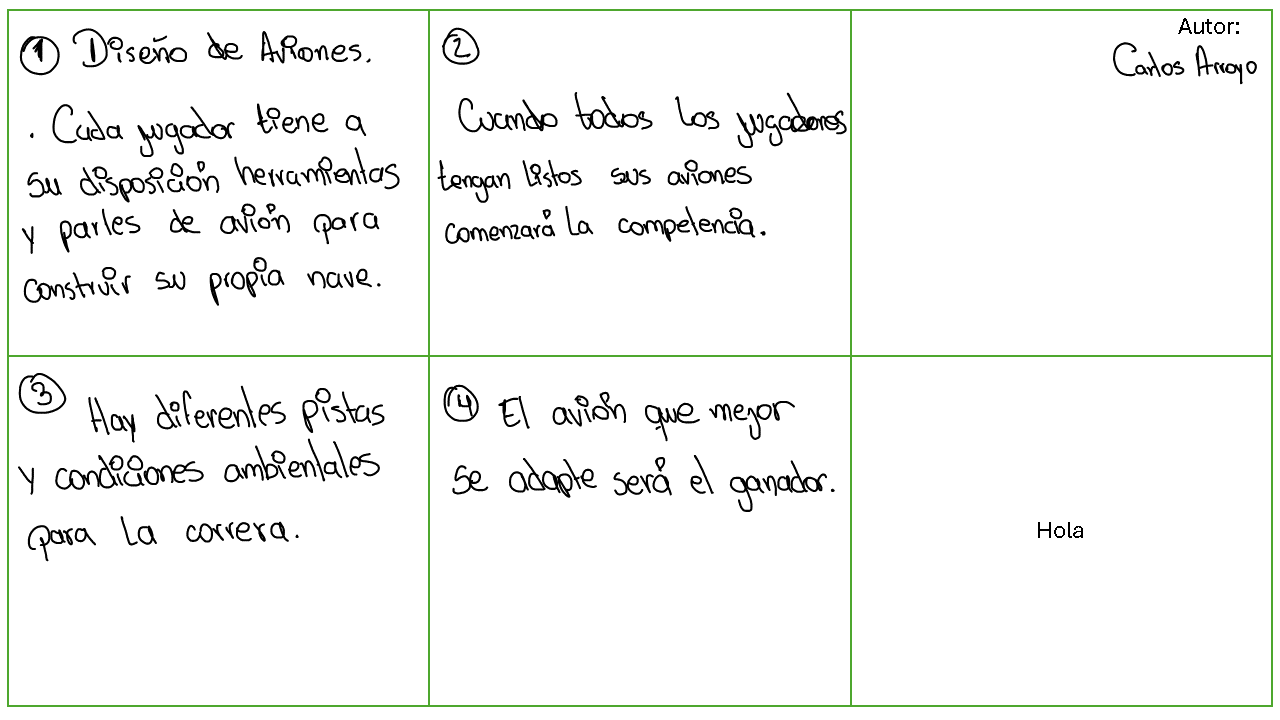 ① Diseño de Aviones.
. Cada jugador tiene a
su disposición herramientas
y partes de avión para
construir su propia nave.
②
Cuando todos los jugadores
tengan listos sus aviones
comenzará la competencia.
Autor:
Carlos Arroyo
③ Hay diferentes pistas
y condiciones ambientales
para la carrera.
④ El avión que mejor
se adapte será el ganador.
Hola